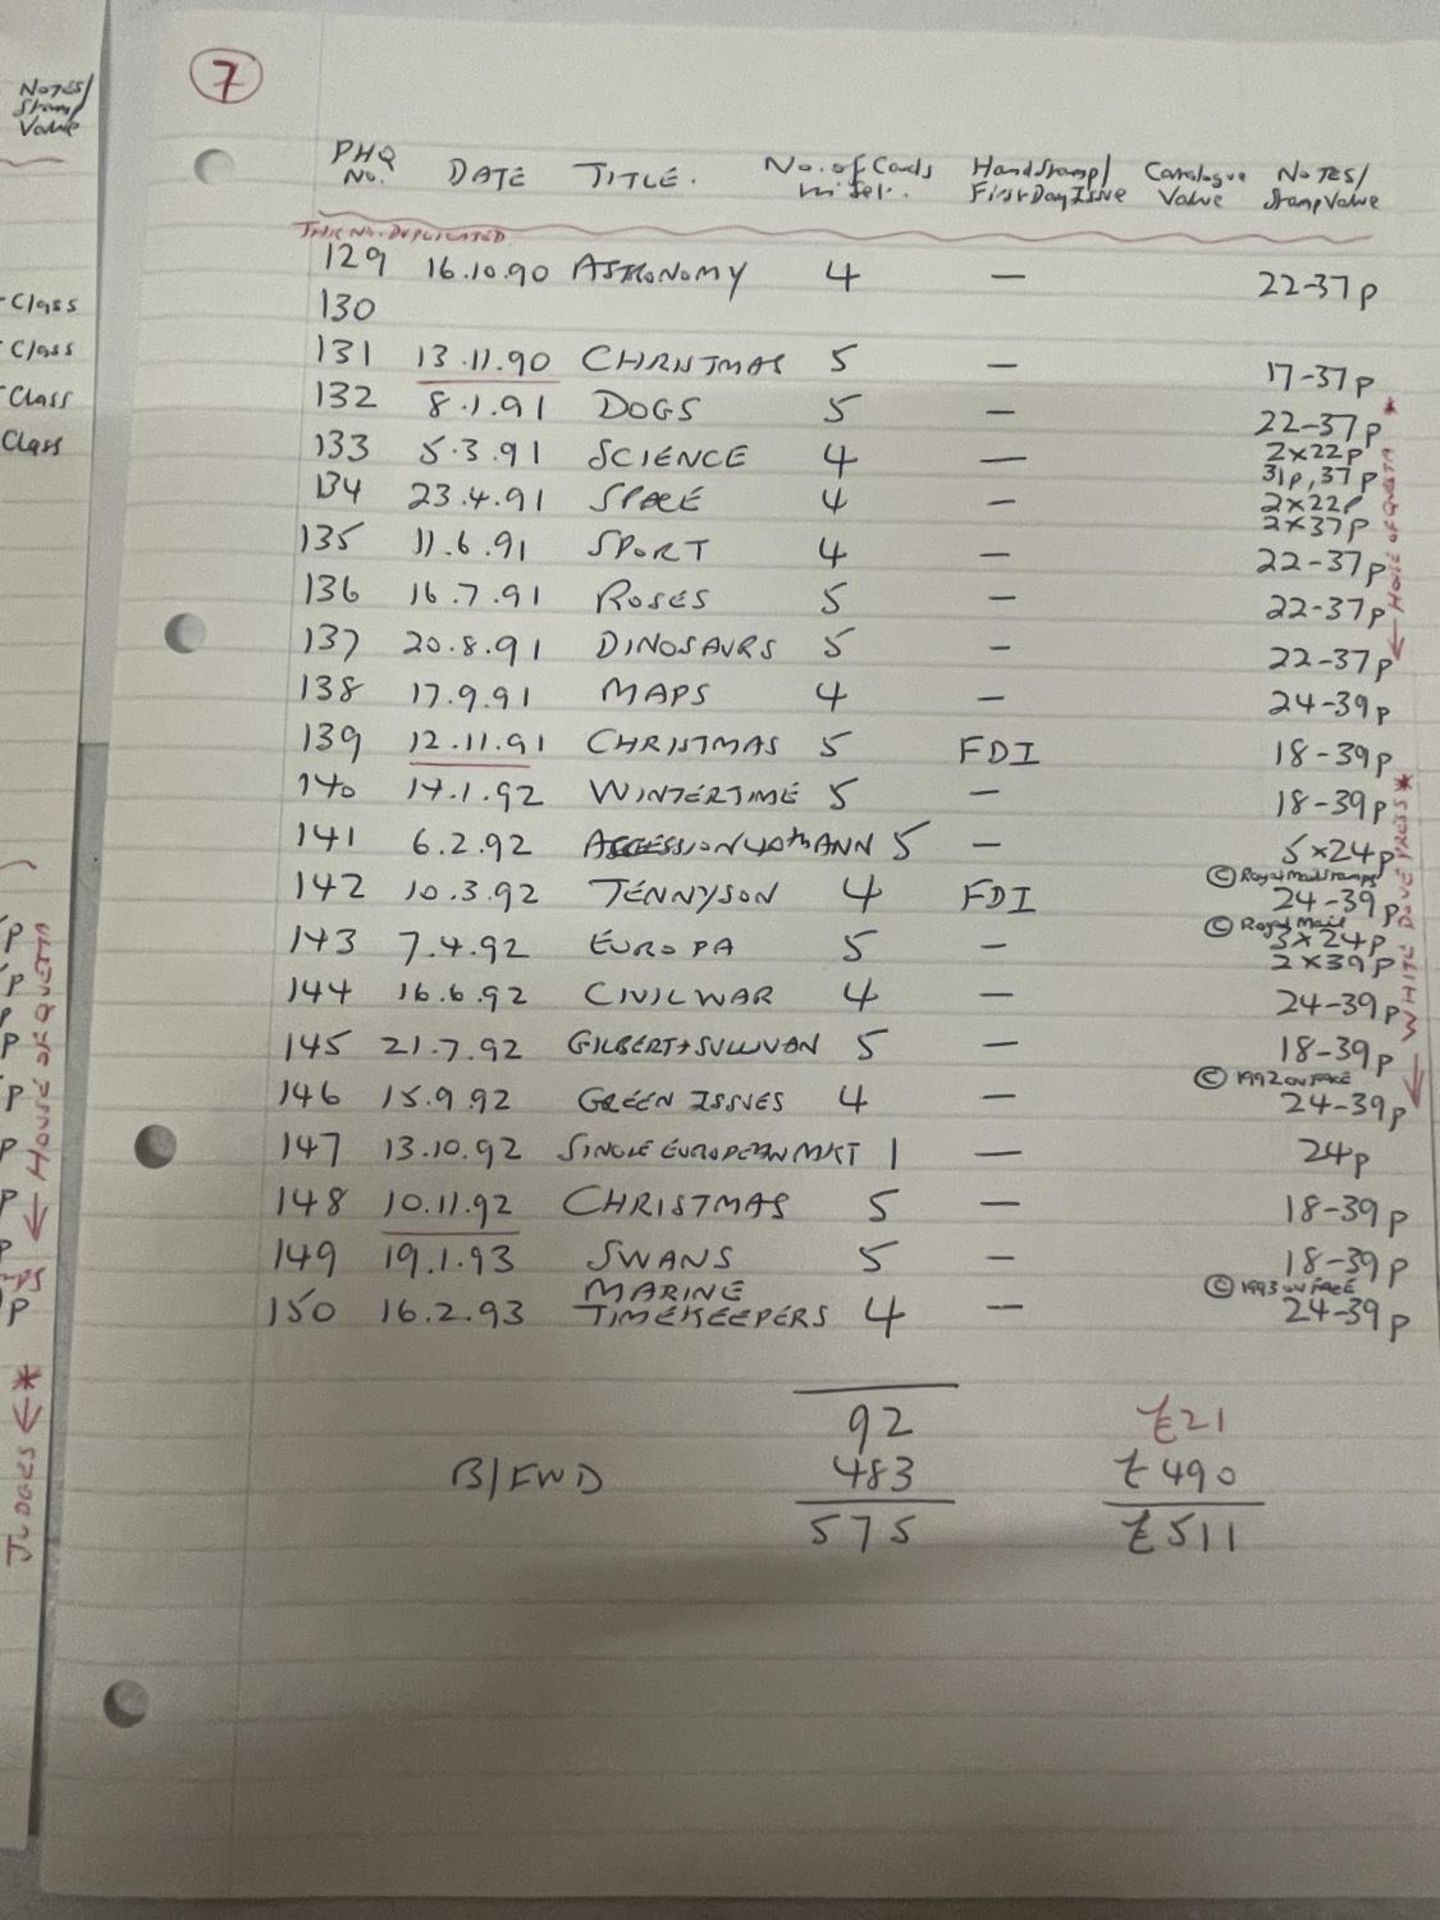 Notes/
Stamp
Value
Class
Class
Class
Class
← HOUSE OF QUETTA
JUDGES ← *
7
PHQ No. DATE TITLE. No. of Cards in Set. Handstamp/ First Day Issue Catalogue Value NOTES/ Stamp Value
THIS NO. DUPLICATED
129 16.10.90 ASTRONOMY 4 — 22-37p
130
131 13.11.90 CHRISTMAS 5 — 17-37p
132 8.1.91 DOGS 5 — 22-37p *
133 5.3.91 SCIENCE 4 — 2x22p 31p, 37p
134 23.4.91 SPACE 4 — 2x22p 2x37p
135 11.6.91 SPORT 4 — 22-37p
136 16.7.91 ROSES 5 — 22-37p
137 20.8.91 DINOSAURS 5 — 22-37p
← HOUSE OF QUETTA
138 17.9.91 MAPS 4 — 24-39p
139 12.11.91 CHRISTMAS 5 FDI 18-39p
140 14.1.92 WINTERTIME 5 — 18-39p *
141 6.2.92 ACCESSION 40th ANN 5 — 5x24p
© Royal Mail Stamps
142 10.3.92 TENNYSON 4 FDI 24-39p
© Royal Mail
143 7.4.92 EUROPA 5 — 3x24p 2x39p
144 16.6.92 CIVIL WAR 4 — 24-39p
145 21.7.92 GILBERT + SULLIVAN 5 — 18-39p
© 1992 ON FACE
146 15.9.92 GREEN ISSUES 4 — 24-39p
← WHITE DOVE PRESS
147 13.10.92 SINGLE EUROPEAN MKT 1 — 24p
148 10.11.92 CHRISTMAS 5 — 18-39p
149 19.1.93 SWANS 5 — 18-39p
© 1993 ON FACE
150 16.2.93 MARINE TIMEKEEPERS 4 — 24-39p
92 £21
B/FWD 483 £490
575 £511